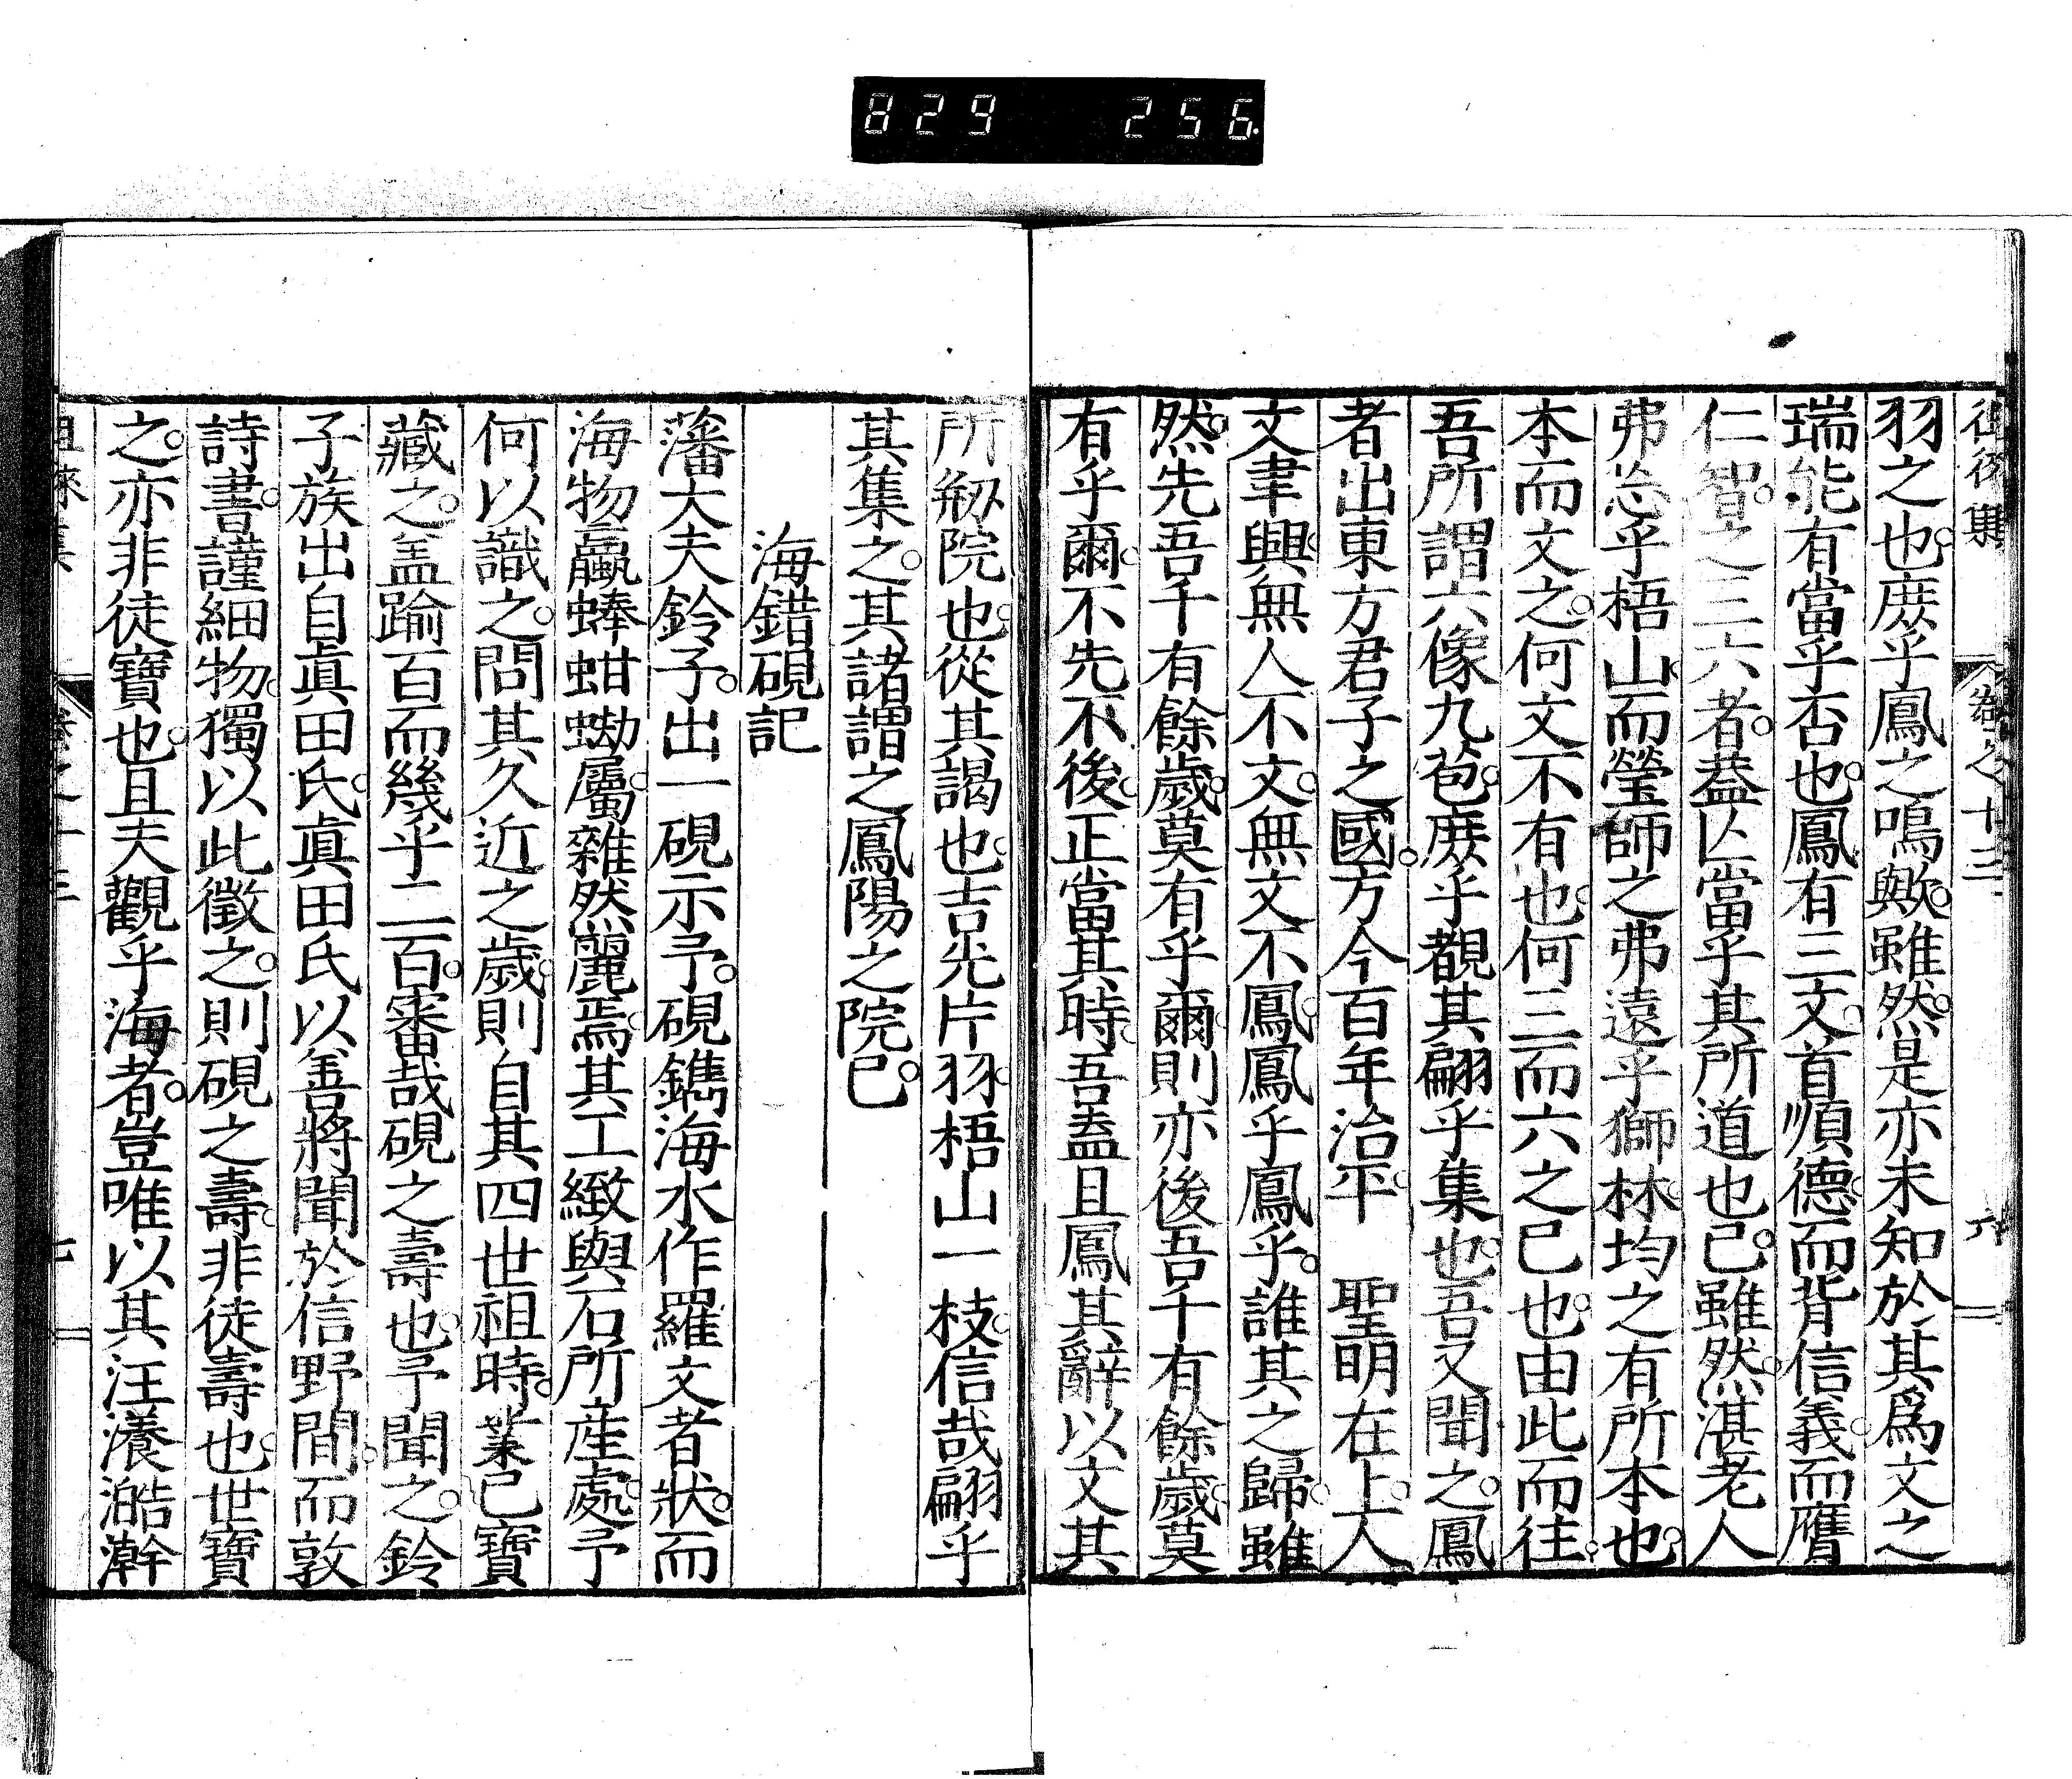 829 256
徂徠集 卷之十三 六
羽之也。庶乎鳳之鳴歟。雖然。是亦未知於其爲文之
瑞能有當乎否也。鳳有三文。首順德。而背信義。而膺
仁智。之三六者。蓋亾當乎其所道也已。雖然。湛老人
弗忩乎梧山。而瑩師之弗遠乎獅林。均之有所本也。
本而文之。何文不有也。何三而六之已也。由此而往。
吾所謂六像九苞。庶乎覩其翩乎集也。吾又聞之。鳳
者出東方君子之國。方今百年治平 聖明在上。人
文聿興。無人不文。無文不鳳。鳳乎鳳乎。誰其之歸。雖
然。先吾千有餘歲。莫有乎爾。則亦後吾千有餘歲。莫
有乎爾。不先不後。正當其時。吾盍且鳳其辭以文其
所剏院也。從其謁也。吉光片羽。梧山一枝。信哉翩乎
其集之。其諸謂之鳳陽之院已。
海錯硯記
藩大夫鈴子。出一硯示予。硯鐫海水作羅文者狀。而
海物蠃蜯蚶蝴屬。雜然麗焉。其工緻與石所産處。予
何以識之。問其久近之歲。則自其四世祖時。業已寶
藏之。盖踰百而幾乎二百。審哉硯之壽也。予聞之。鈴
子族出自眞田氏。眞田氏以善將聞於信野間。而敦
詩書。謹細物。獨以此徵之。則硯之壽。非徒壽也。世寶
之。亦非徒寶也。且夫觀乎海者。豈唯以其汪瀁澔澣
徂徠集 卷之十三 七